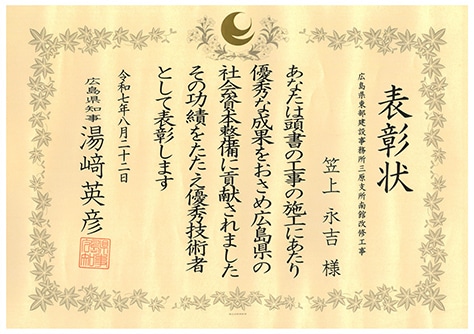 表彰状
広島県東部建設事務所三原支所南館改修工事
笠上 永吉 様
あなたは頭書の工事の施工にあたり
優秀な成果をおさめ広島県の
社会資本整備に貢献されました
その功績をたたえ優秀技術者
として表彰します
令和七年八月二十二日
広島県知事 湯﨑英彦